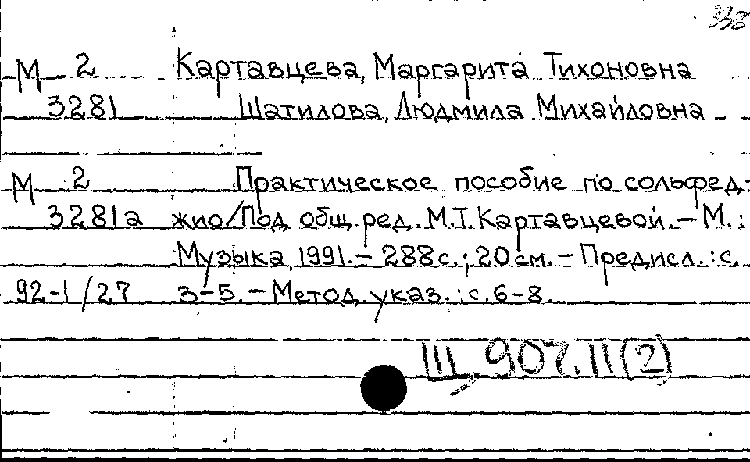 338
М 2 Картавцева, Маргарита Тихоновна
3281 Шатилова, Людмила Михайловна
М 2 Практическое пособие по сольфед-
3281а жио/Под общ. ред. М.Т. Картавцевой. – М.:
Музыка, 1991. – 288 с.; 20 см. – Предисл.: с.
92-1/27 3-5. – Метод. указ.: с. 6-8.
III 907.II(2)